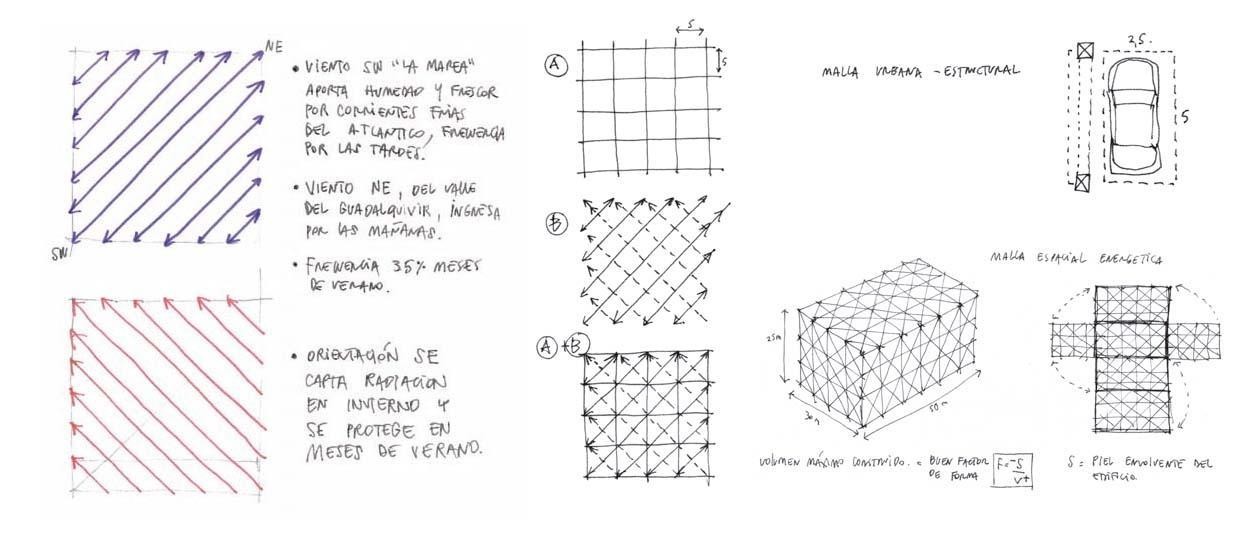 NE
SW
• VIENTO SW "LA MAREA"
APORTA HUMEDAD Y FRESCOR
POR CORRIENTES FRIAS
DEL ATLANTICO, FREWENCIA
POR LAS TARDES.
• VIENTO NE, DEL VALLE
DEL GUADALQUIVIR, INGRESA
POR LAS MAÑANAS.
• FREWENCIA 35% MESES
DE VERANO.
• ORIENTACIÓN SE
CAPTA RADIACION
EN INVIERNO Y
SE PROTEGE EN
MESES DE VERANO.
A
5
5
B
A + B
MALLA URBANA - ESTRUCTURAL
2,5.
5
MALLA ESPACIAL ENERGETICA
25m
30m
50m
VOLUMEN MÁXIMO CONSTRUIDO. = BUEN FACTOR
DE FORMA
F=-S
V+
S = PIEL ENVOLVENTE DEL
EDIFICIO.